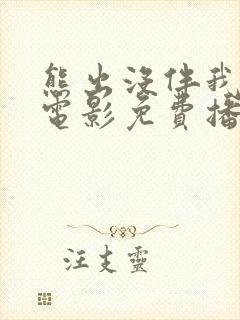 熊出没伴我
电影免费播
汪支灵